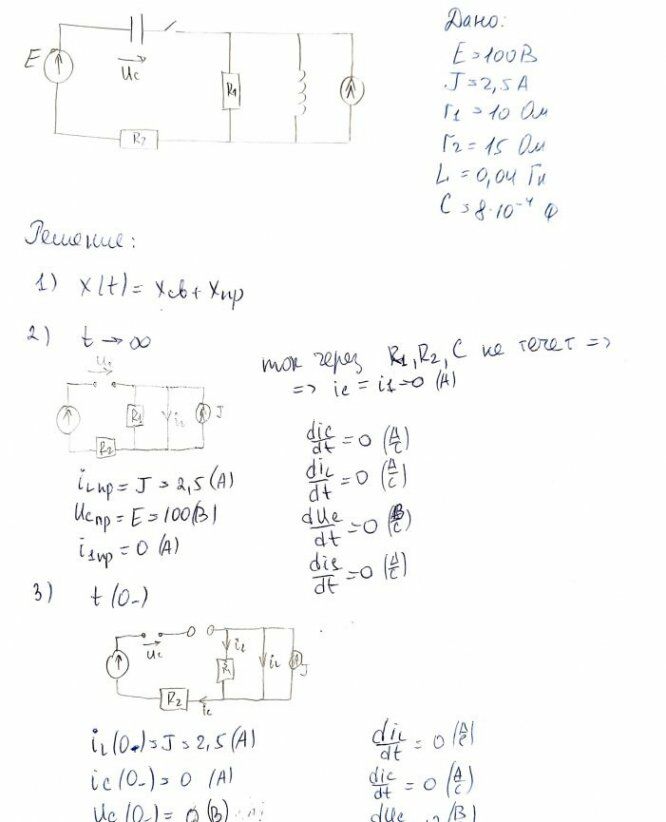 E
Uc
R1
R2
Дано:
E=100В
J=2,5 А
r1=10 Ом
r2=15 Ом
L=0,04 Гн
C=8·10⁻⁴ Ф
Решение:
1) x(t)=xсв+xпр
2) t→∞
R1
iL
J
R2
ток через R1,R2,C не течет =>
=> ic=i1=0 (А)
iLпр=J=2,5(А)
Ucпр=E=100(В)
i1пр=0 (А)
dic/dt=0 (А/с)
diL/dt=0 (А/с)
dUc/dt=0 (В/с)
di1/dt=0 (А/с)
3) t(0-)
Uc
R1
iL
J
R2
ic
iL(0-)=J=2,5(А)
ic(0-)=0 (А)
Uc(0-)=0(В)
diL/dt=0 (А/с)
dic/dt=0 (А/с)